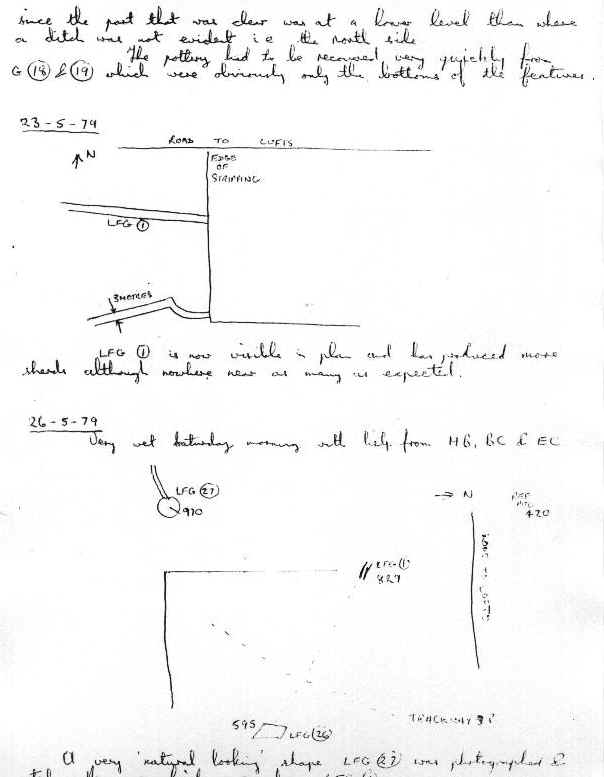 since the part that was clear was at a lower level than where
a ditch was not evident i e the north side
The pottery had to be recovered very quickly from
G (18) & (19) which were obviously only the bottoms of the features.
23-5-79
N
ROAD TO LUFTS
EDGE
OF
STRIPPING
LFG (1)
3 METRES
LFG (1) is now visible in plan and has produced more
sherds although nowhere near as many as expected.
26-5-79
Very wet Saturday morning with help from HB, BC & EC
LFG (27)
970
N
420
LFG (1)
829
595
LFG (26)
TRACKWAY
A very 'natural looking' shape LFG (27) was photographed &